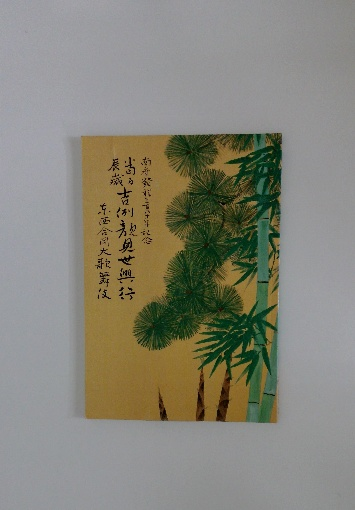 南座発祥三百八十年記念
當る
辰歳
吉例顔見世興行
東西合同大歌舞伎